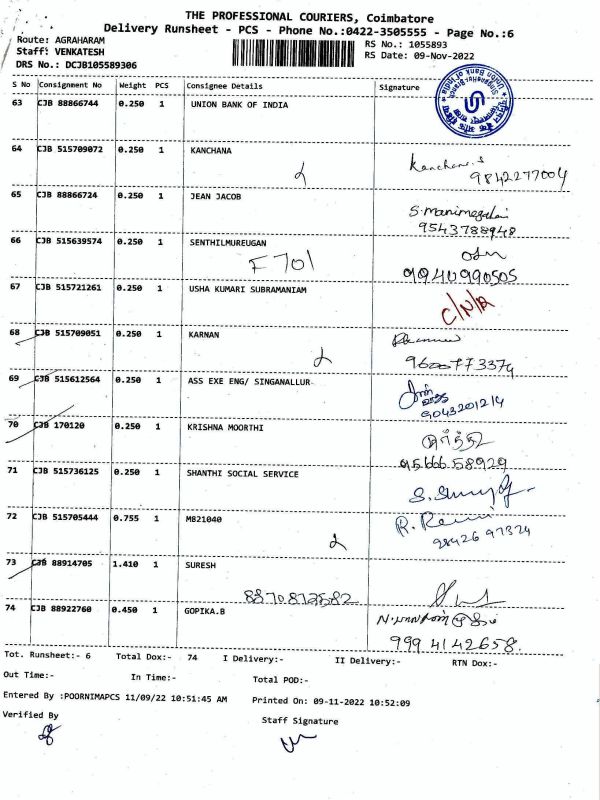 THE PROFESSIONAL COURIERS, Coimbatore
Delivery Runsheet - PCS - Phone No.:0422-3505555 - Page No.:6
Route: AGRAHARAM
Staff: VENKATESH
DRS No.: DCJB105589306
RS No.: 1055893
RS Date: 09-Nov-2022
S No Consignment No Weight PCS Consignee Details Signature
63 CJB 88866744 0.250 1 UNION BANK OF INDIA
64 CJB 515709072 0.250 1 KANCHANA
Kanchana.S
9842277004
65 CJB 88866724 0.250 1 JEAN JACOB
S.Manimegalai
9543788948
66 CJB 515639574 0.250 1 SENTHILMUREUGAN
F 701
9940990505
67 CJB 515721261 0.250 1 USHA KUMARI SUBRAMANIAM
C/N/R
68 CJB 515709051 0.250 1 KARNAN
9600773374
69 CJB 515612564 0.250 1 ASS EXE ENG/ SINGANALLUR
9043201214
70 CJB 170120 0.250 1 KRISHNA MOORTHI
95666 58929
71 CJB 515736125 0.250 1 SHANTHI SOCIAL SERVICE
72 CJB 515705444 0.755 1 MB21040
98426 97324
73 CJB 88914705 1.410 1 SURESH
8870812582
74 CJB 88922760 0.450 1 GOPIKA.B
999 4142658.
Tot. Runsheet:- 6 Total Dox:- 74 I Delivery:- II Delivery:- RTN Dox:-
Out Time:- In Time:- Total POD:-
Entered By :POORNIMAPCS 11/09/22 10:51:45 AM Printed On: 09-11-2022 10:52:09
Verified By Staff Signature